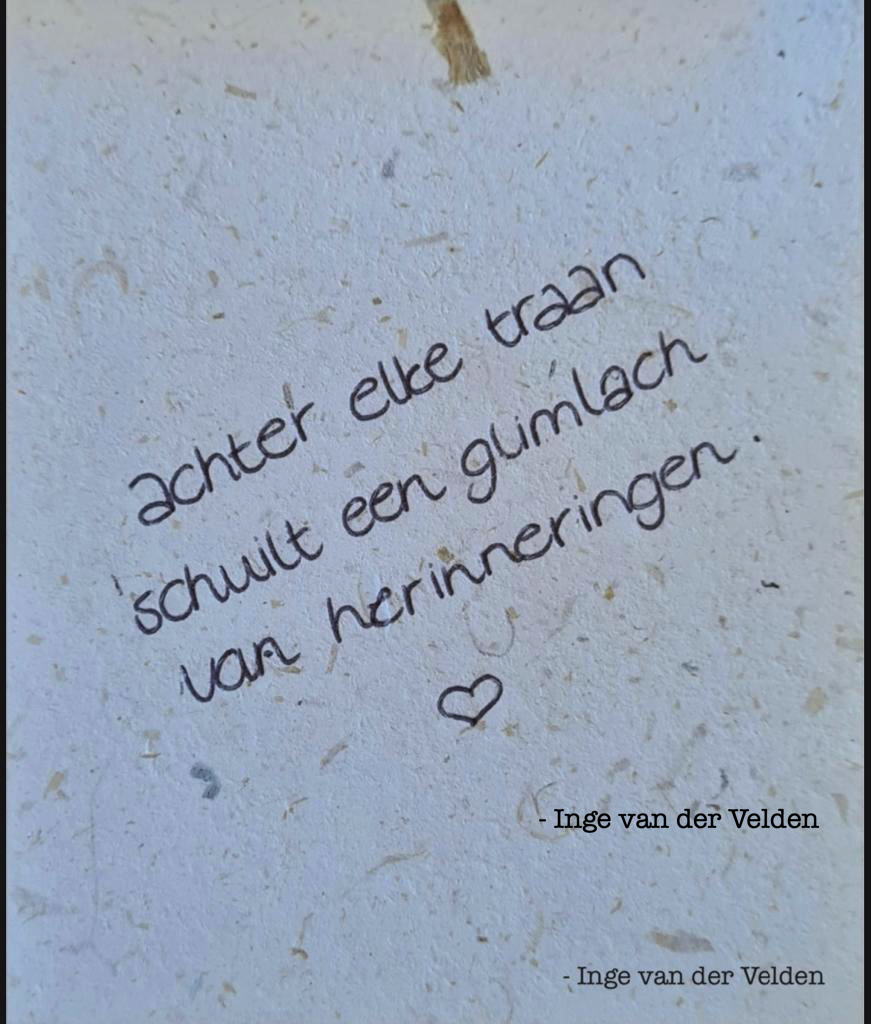 achter elke traan
schuilt een glimlach
van herinneringen.
- Inge van der Velden
- Inge van der Velden